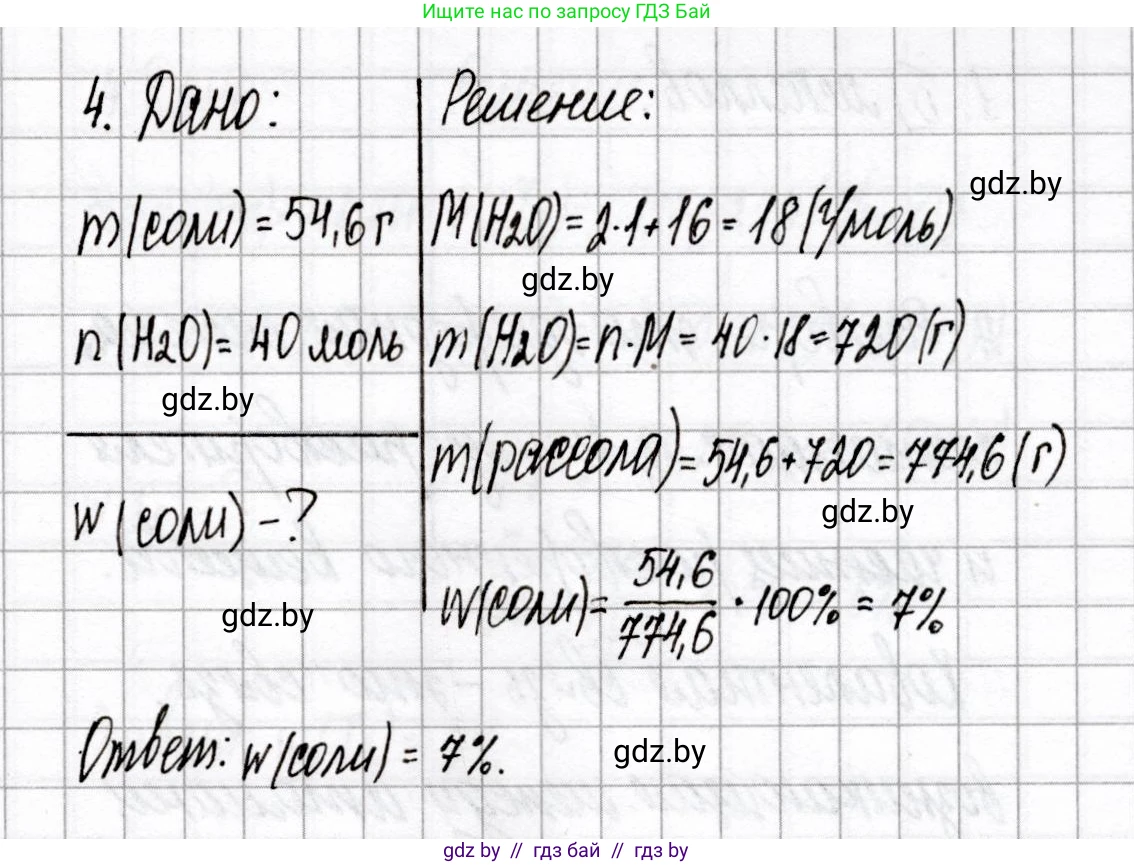 Ищите нас по запросу ГДЗ Бай
4. Дано:
m(соли) = 54,6 г
n(H2O) = 40 моль
gdz.by
w(соли) - ?
gdz.by
Решение:
gdz.by
M(H2O) = 2·1+16 = 18 (г/моль)
gdz.by
m(H2O) = n·M = 40·18 = 720 (г)
m(рассола) = 54,6+720 = 774,6 (г)
gdz.by
w(соли) = 54,6/774,6 · 100% = 7%
Ответ: w(соли) = 7%.
gdz.by
gdz by // гдз бай // gdz by